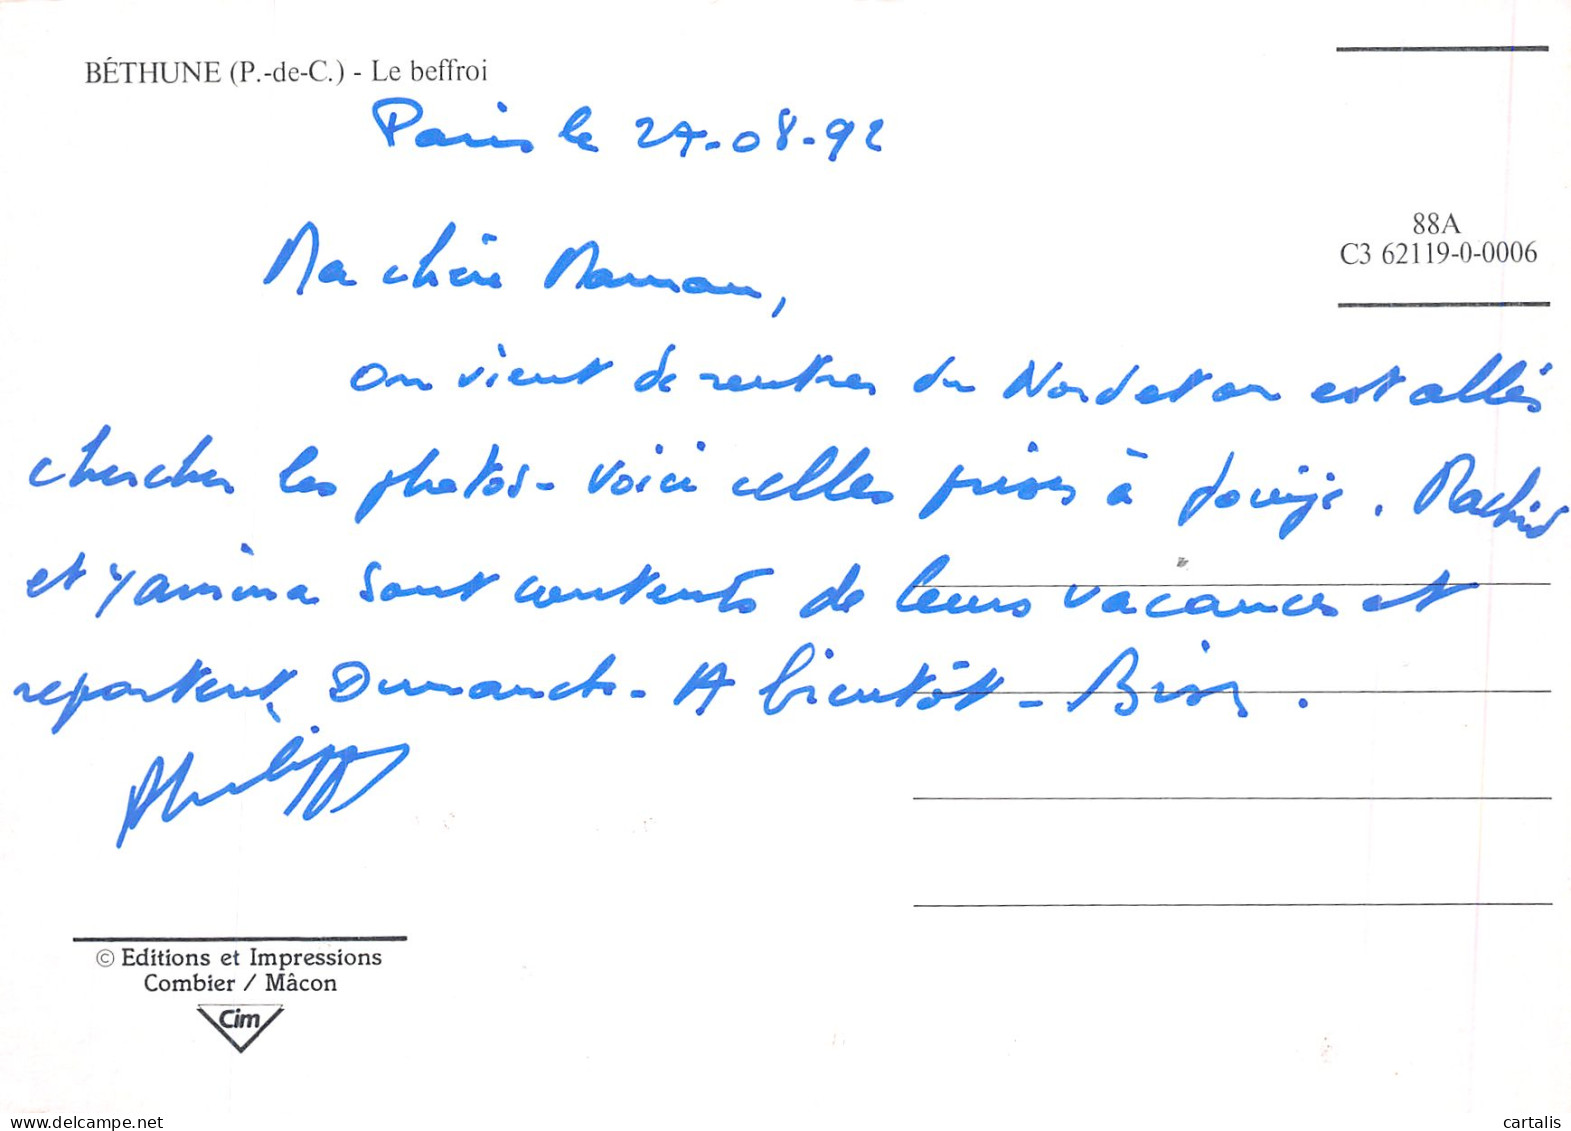 BÉTHUNE (P.-de-C.) - Le beffroi
Paris le 27-08-92
88A
C3 62119-0-0006
Ma chère Maman,
on vient de rentrer du Nord et on est allés
chercher les photos - voici celles prises à . Rachid
et Yamina sont contents de leurs vacances et
repartent Dimanche - A bientôt - Bises.
Philippe
© Editions et Impressions
Combier / Mâcon
Cim
www.delcampe.net
cartalis